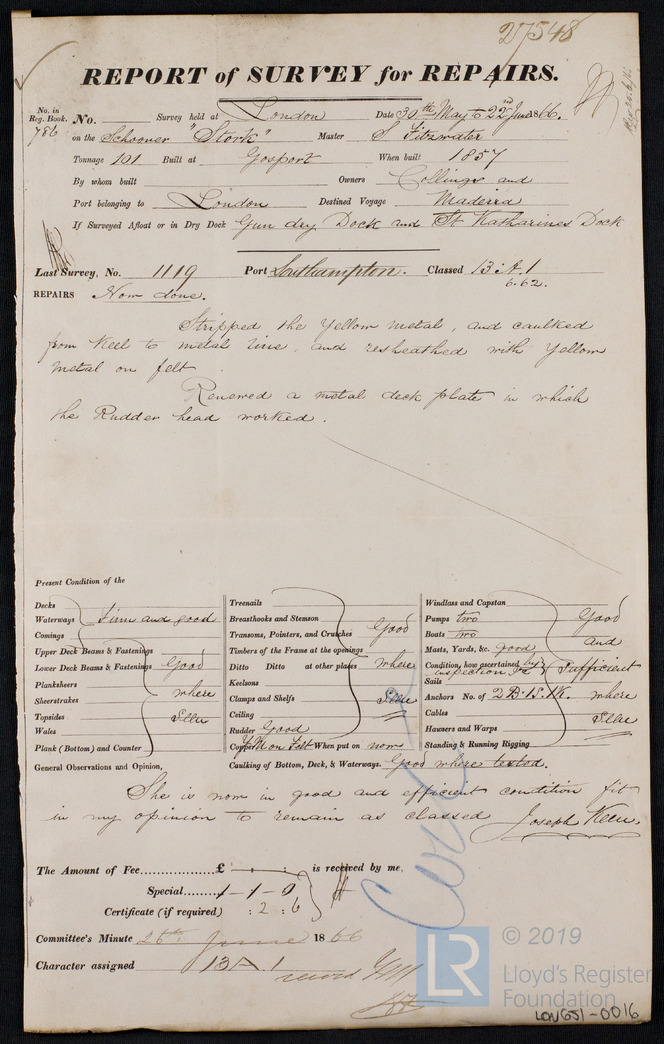 27548
REPORT of SURVEY for REPAIRS.
No. in Reg. Book. 786 No. Survey held at London Date 30th May to 22nd June 1866.
on the Schooner "Stork" Master S Fitzwater
Tonnage 101 Built at Gosport When built 1857
By whom built Owners Collings and
Port belonging to London Destined Voyage Maderia
If Surveyed Afloat or in Dry Dock Gun dry Dock and St Katharines Dock
Last Survey, No. 1119 Port Southampton. Classed 13 A.1
6.62.
REPAIRS Now done.
Stripped the Yellow metal, and caulked
from Keel to metal line, and resheathed with Yellow
metal on felt
Renewed a metal deck plate in which
the Rudder head worked.
Present Condition of the
Decks
Waterways Firm and good
Comings
Upper Deck Beams & Fastenings
Lower Deck Beams & Fastenings Good
Planksheers
Sheerstrakes where
Topsides Seen
Wales
Plank (Bottom) and Counter
Treenails
Breasthooks and Stemson
Transoms, Pointers, and Crutches Good
Timbers of the Frame at the openings
Ditto Ditto at other places where
Keelsons
Clamps and Shelfs Seen
Ceiling
Rudder Good
Copper YM on Felt When put on now
Windlass and Capstan
Pumps two Good
Boats two
Masts, Yards, &c. good and
Condition, how ascertained by inspection &c Sufficient
Sails
Anchors No. of 2 B. 1S. 1K. where
Cables
Hawsers and Warps Seen
Standing & Running Rigging
General Observations and Opinion, Caulking of Bottom, Deck, & Waterways. Good where tested.
She is now in good and efficient condition fit
in my opinion to remain as classed Joseph Keen.
The Amount of Fee £ : : is received by me,
Special 1-1-0
Certificate (if required) :2 :6
Committee's Minute 26th June 1866
Character assigned 13 A.1
LR © 2019
Lloyd's Register
Foundation
LON651-0016